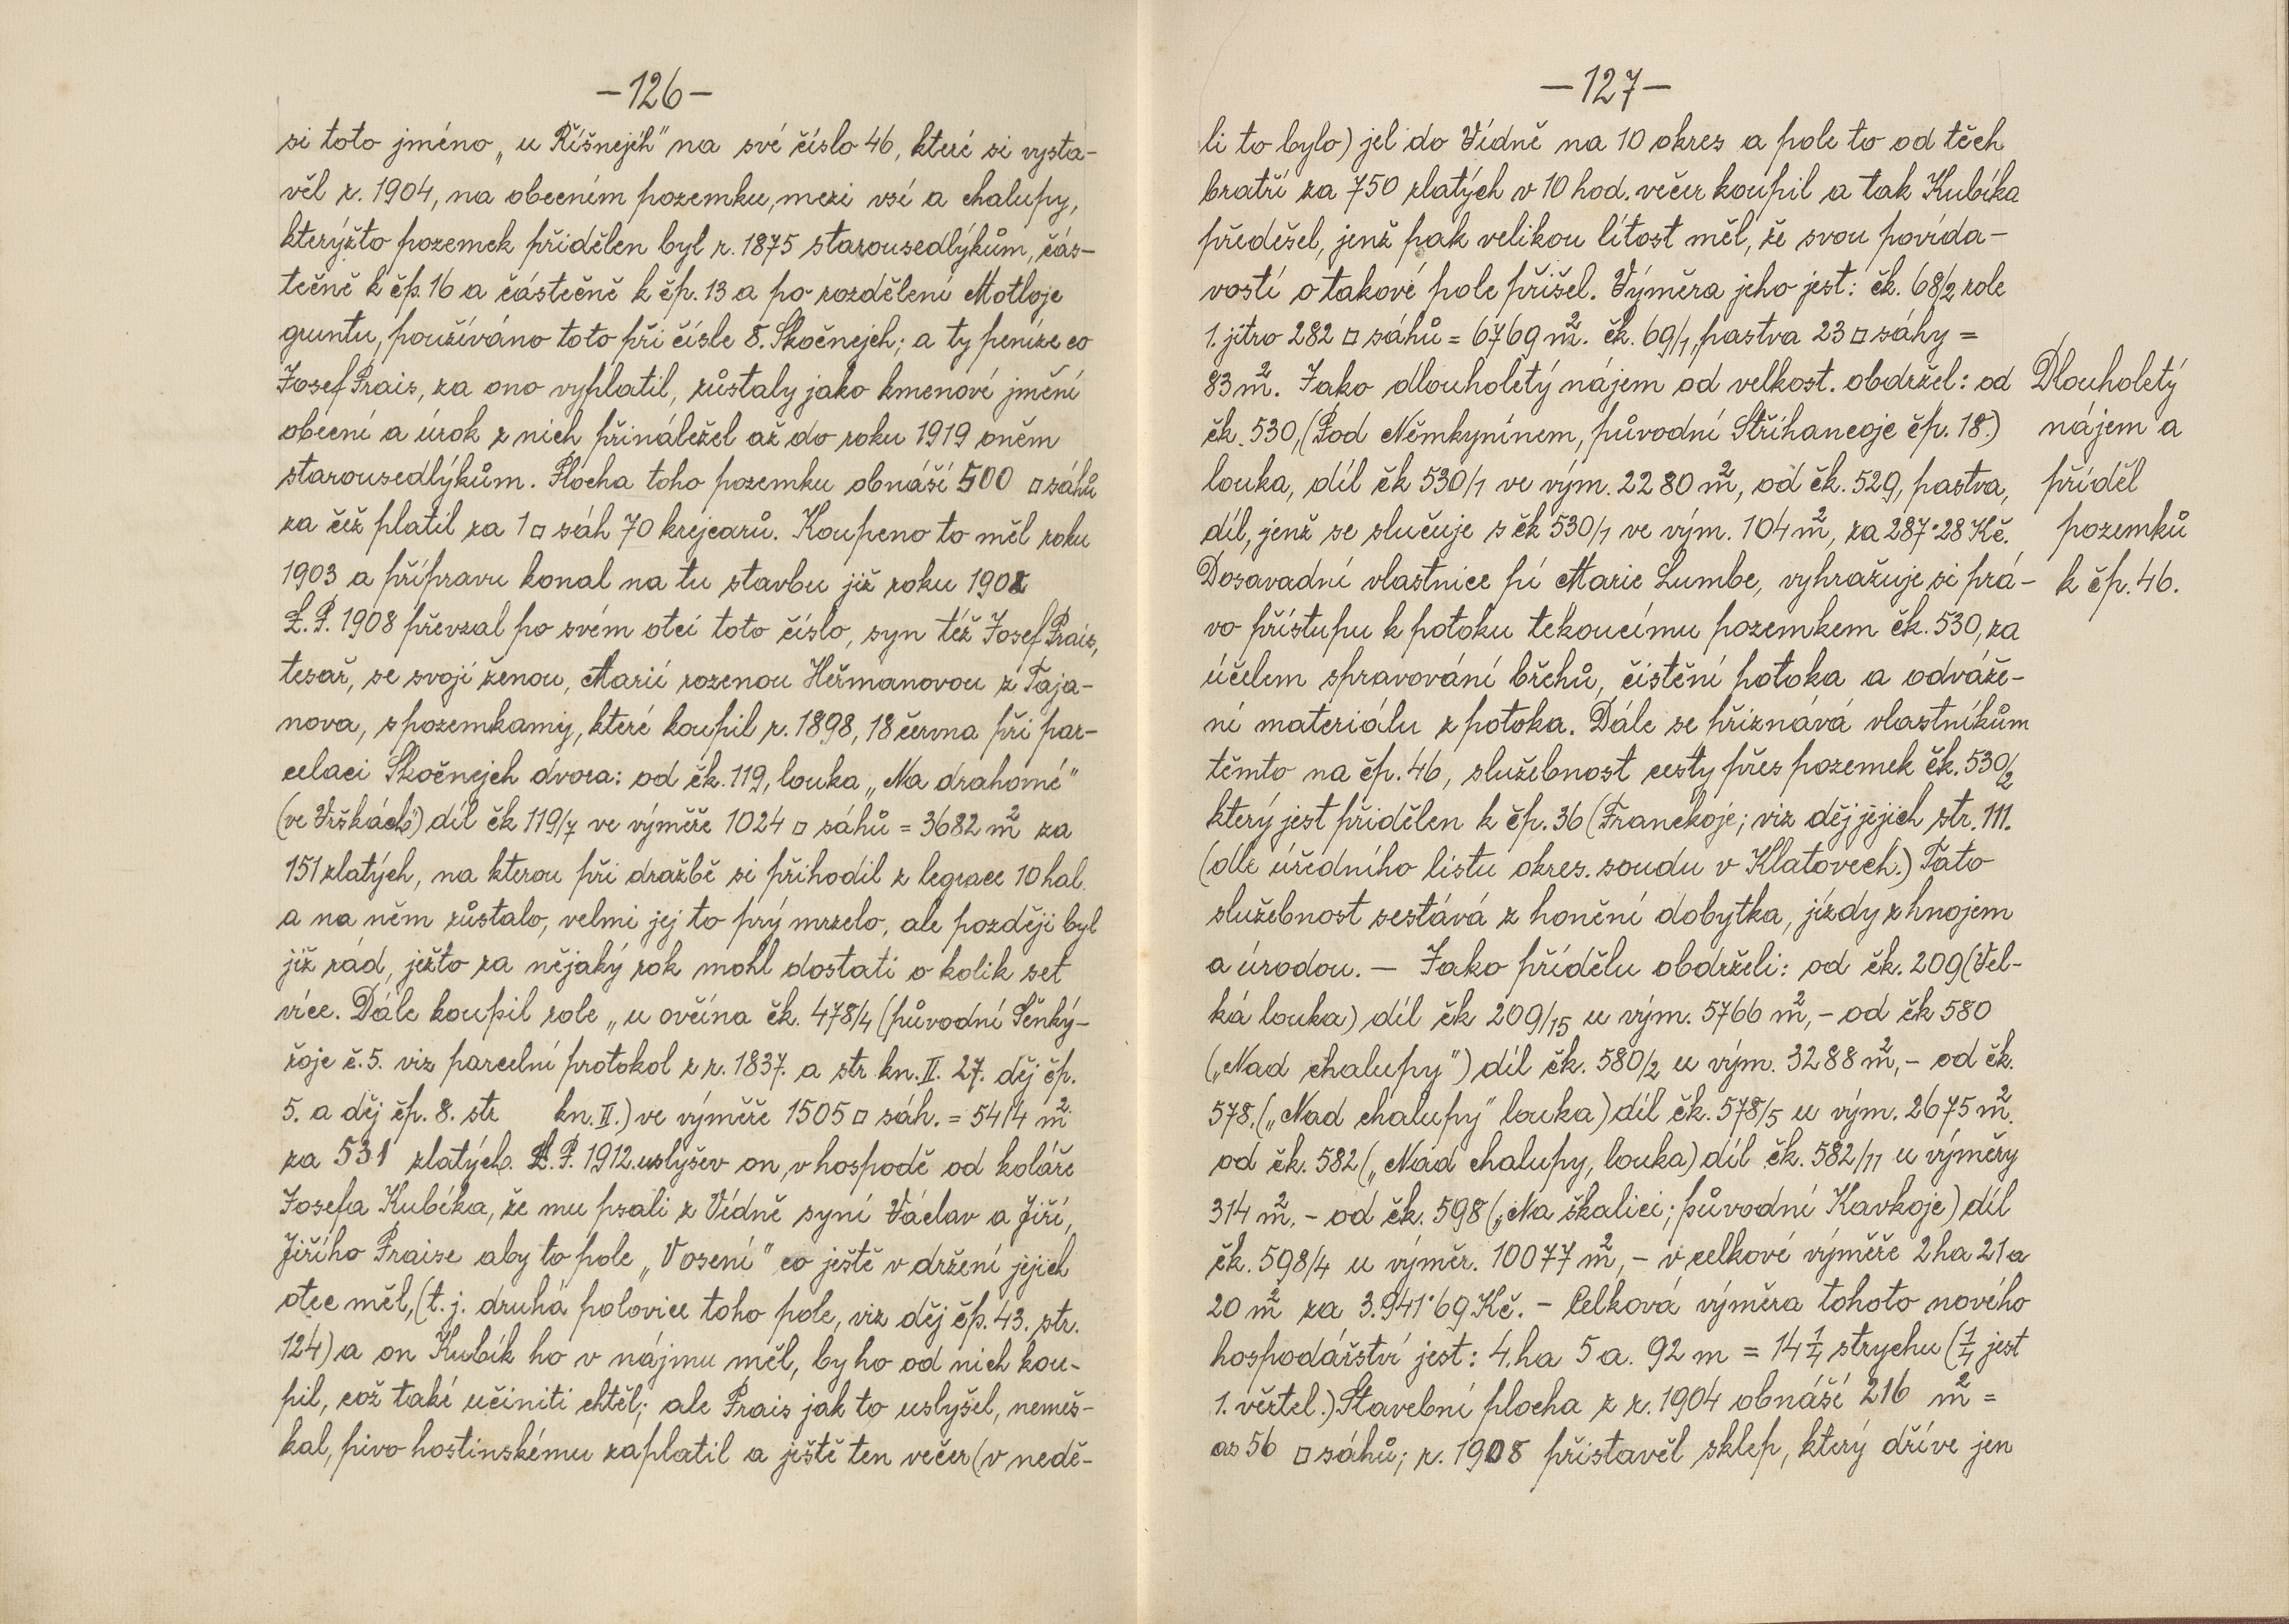 —126—
si toto jméno „u Říšnejch" na své číslo 46, které si vysta-
věl r. 1904, na obecním pozemku, mezi vsí a chalupy,
kterýžto pozemek přidělen byl r. 1875 starousedlýkům, čás-
tečně k čp. 16 a částečně k čp. 13 a po rozdělení Motloje
gruntu, používáno toto při čísle 8. Skočnejch; a ty peníze co
Josef Prais, za ono vyplatil, zůstaly jako kmenové jmění
obecní a úrok z nich přináležel až do roku 1919 oněm
starousedlýkům. Plocha toho pozemku obnáší 500 □ sáhů
za čež platil za 1 □ sáh 70 krejcarů. Koupeno to měl roku
1903 a přípravu konal na tu stavbu již roku 1902
L. P. 1908 převzal po svém otci toto číslo, syn též Josef Prais,
tesař, se svojí ženou, Marií rozenou Heřmanovou z Taja-
nova, s pozemkamy, které koupil r. 1898, 18 června při par-
celaci Skočnejch dvora: od čk. 119, louka „Na drahomé"
(ve Vrškách) díl čk 119/7 ve výměře 1024 □ sáhů = 3682 m² za
151 zlatých, na kterou při dražbě si přihodil z legrace 10 hal.
a na něm zůstalo, velmi jej to prý mrzelo, ale později byl
již rád, ježto za nějaký rok mohl dostati o kolik set
více. Dále koupil role „u ovčína čk. 478/4 (původní Šenký-
řoje č. 5. viz parcelní protokol z r. 1837. a str kn. II. 27. děj čp.
5. a děj čp. 8. str kn. II.) ve výměře 1505 □ sáh. = 5414 m²
za 531 zlatých. L. P. 1912. uslyšev on, v hospodě od koláře
Josefa Kubíka, že mu psali z Vídně syní Václav a Jiří,
Jiřího Praise aby to pole „V osení" co ještě v držení jejich
otec měl, (t. j. druhá polovice toho pole, viz děj čp. 43. str.
124) a on Kubík ho v nájmu měl, by ho od nich kou-
pil, což také učiniti chtěl; ale Prais jak to uslyšel, nemeš-
kal, pivo hostinskému zaplatil a ještě ten večer (v nedě-
—127—
li to bylo) jel do Vídně na 10 okres a pole to od těch
bratří za 750 zlatých v 10 hod. večer koupil a tak Kubíka
předešel, jenž pak velikou lítost měl, že svou povída-
vostí o takové pole přišel. Výměra jeho jest: čk. 68/2 role
1. jitro 282 □ sáhů = 6769 m². čk. 69/1, pastva 23 □ sáhy =
83 m². Jako dlouholetý nájem od velkost. obdržel: od
čk. 530, (Pod Němkynínem, původní Stříhancoje čp. 18.)
louka, díl čk 530/1 ve vým. 2280 m², od čk. 529, pastva,
díl, jenž se slučuje s čk 530/1 ve vým. 104 m², za 287·28 Kč.
Dosavadní vlastnice pí Marie Lumbe, vyhražuje si prá-
vo přístupu k potoku tekoucímu pozemkem čk. 530, za
účelem spravování břehů, čistění potoka a odváže-
ní materiálu z potoka. Dále se přiznává vlastníkům
těmto na čp. 46, služebnost cesty přes pozemek čk. 530/2
který jest přidělen k čp. 36 (Franckoje; viz děj jejich str. 111.
(dle úředního listu okres. soudu v Klatovech.) Tato
služebnost sestává z honění dobytka, jízdy z hnojem
a úrodou. — Jako přídělu obdrželi: od čk. 209 (Vel-
ká louka) díl čk 209/15 u vým. 5766 m², – od čk 580
(„Nad chalupy") díl čk. 580/2 u vým. 3288 m², – od čk.
578. („Nad chalupy" louka) díl čk. 578/5 u vým. 2675 m².
od čk. 582 („Nad chalupy, louka) díl čk. 582/11 u výměry
314 m². – od čk. 598 („Na škalici; původní Kavkoje) díl
čk. 598/4 u výměr. 10077 m², – v celkové výměře 2 ha 21 a
20 m² za 3.941·69 Kč. – Celková výměra tohoto nového
hospodářství jest: 4. ha 5 a. 92 m = 14 1/4 strychu (1/4 jest
1. věrtel.) Stavební plocha z r. 1904 obnáší 216 m² =
as 56 □ sáhů; r. 1908 přistavěl sklep, který dříve jen
Dlouholetý
nájem a
příděl
pozemků
k čp. 46.